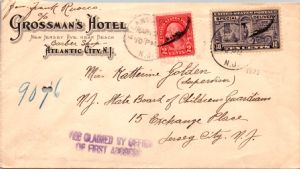 from Frank Russo
c/o
GROSSMAN'S HOTEL
NEW JERSEY AVE. NEAR BEACH
Barber Shop
ATLANTIC CITY, N.J.
9076
UNITED STATES POSTAGE
SPECIAL DELIVERY
TEN CENTS
N.J.
Miss Katherine Golden
(Supervisor)
N.J. State Board of Children Guardians
15 Exchange Place
Jersey City. N.J.
FEE CLAIMED BY OFFICE
OF FIRST ADDRESS